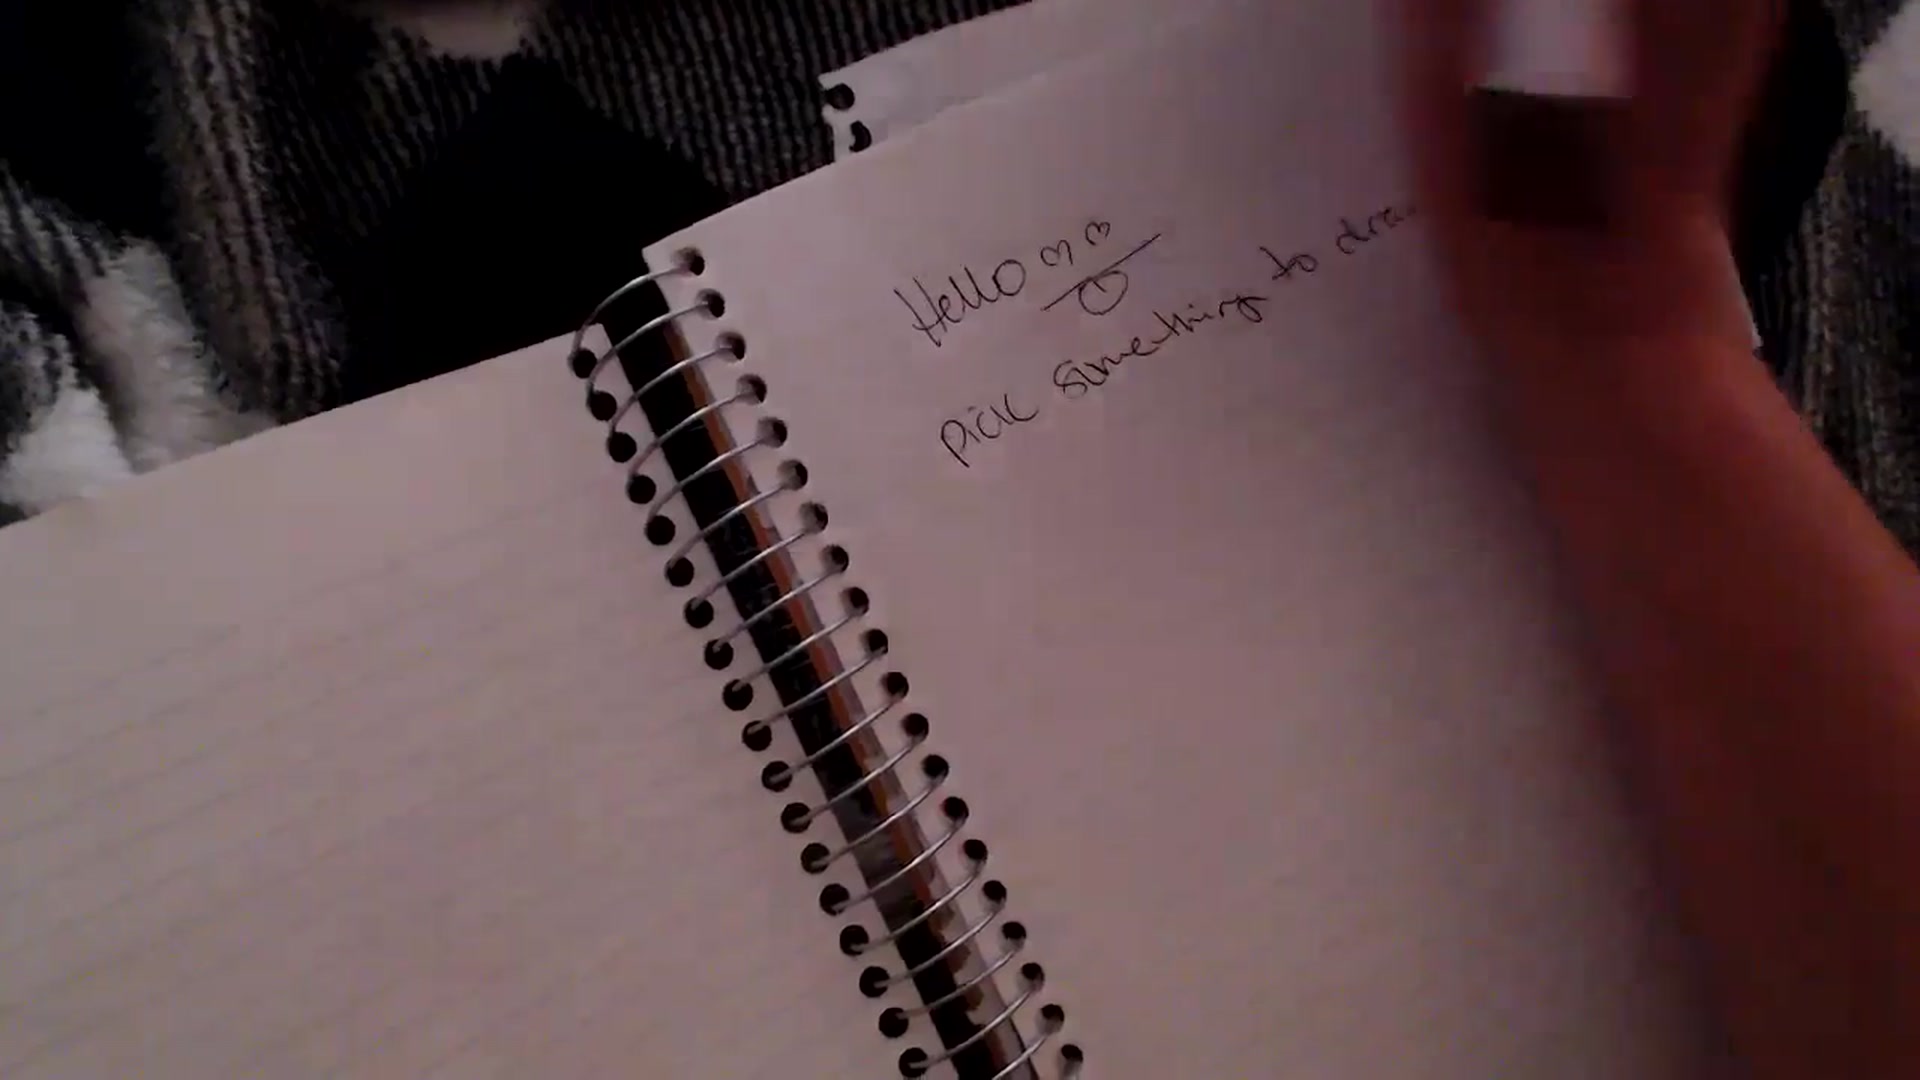 Hello
pick something to